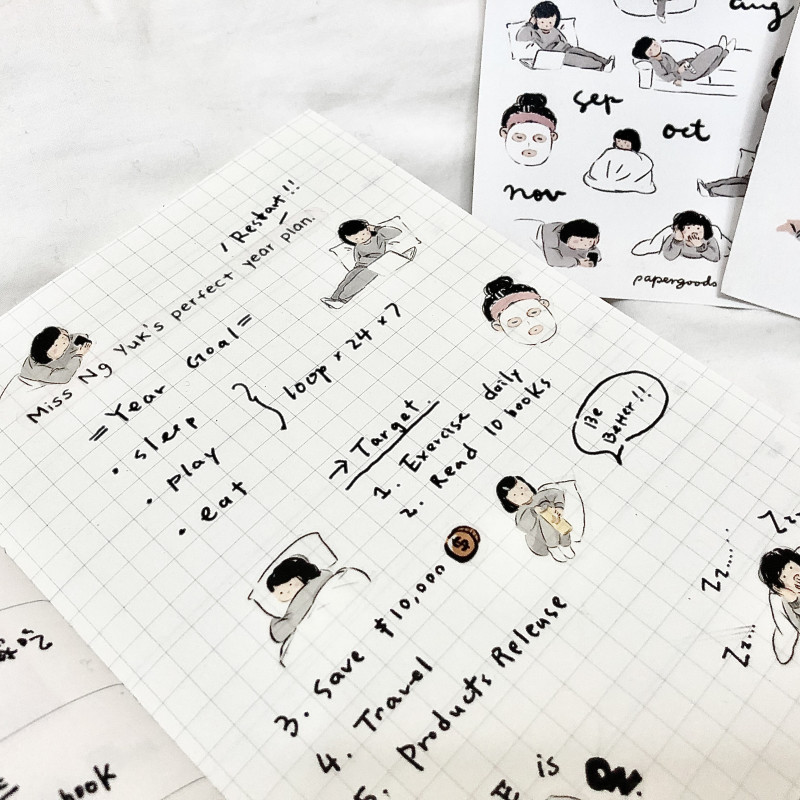 aug
sep
oct
nov
papergoods
/ Restart!!
Miss Ng Yuk's perfect year plan.
=Year Goal=
• sleep
• play
• eat
} loop × 24 × 7
→ Target.
1. Exercise daily
2. Read 10 books
Be
Better!!
3. Save $10,000
$
4. Travel
5. Products Release
Zz...
Zz.....
Zz...
is ON.
吃
book